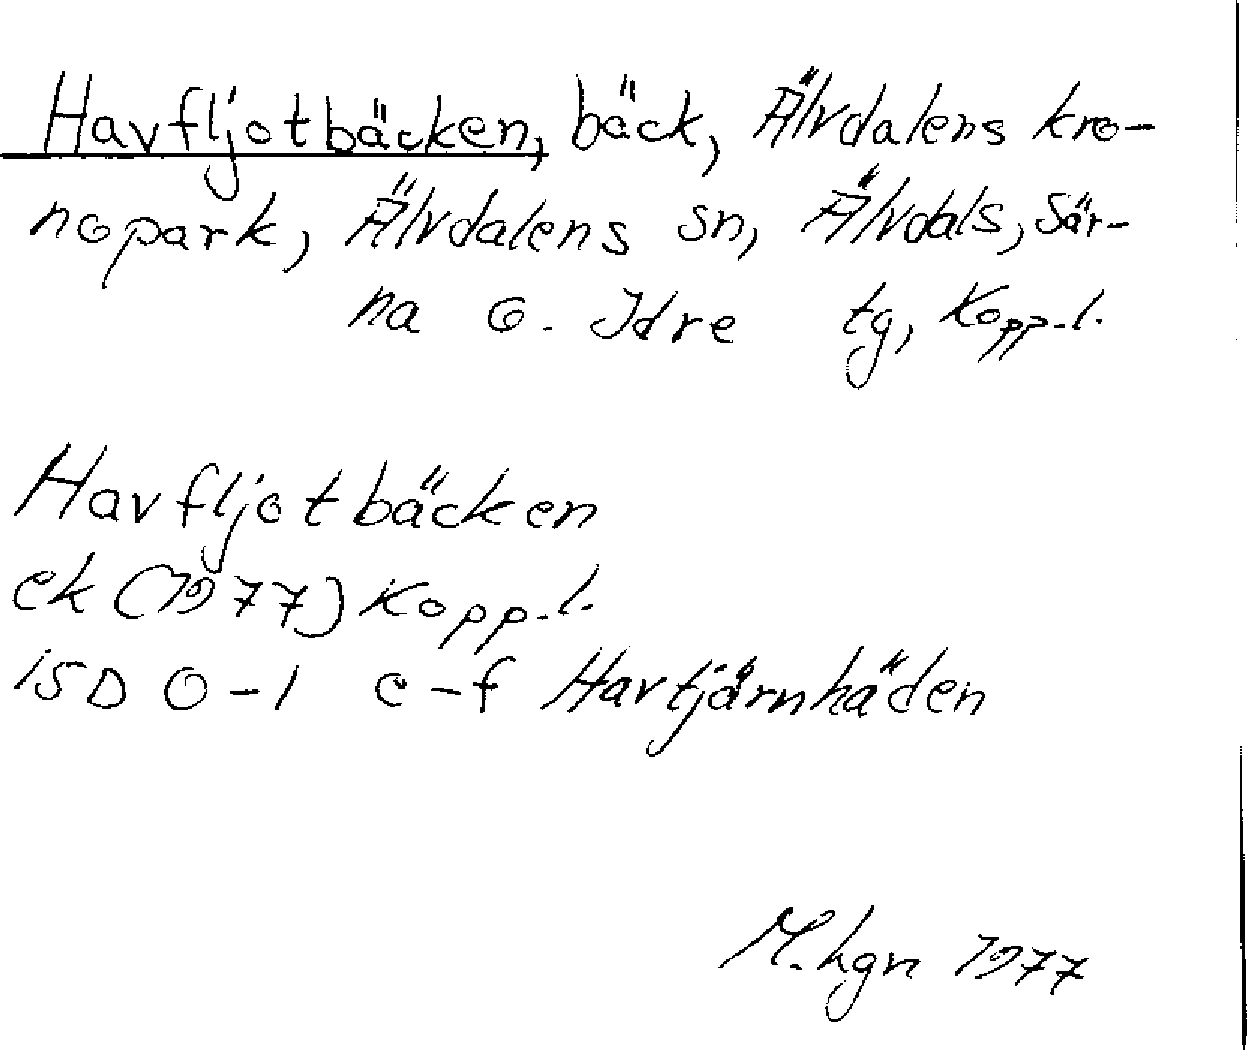 Havfljotbäcken, bäck, Älvdalens kro-
nopark, Älvdalens sn, Älvdals, Sär-
na o. Idre tg, Kopp.l.
Havfljotbäcken
ek (1977) Kopp.l.
15D 0-1 e-f Havtjärnhäden
M.hgn 1977